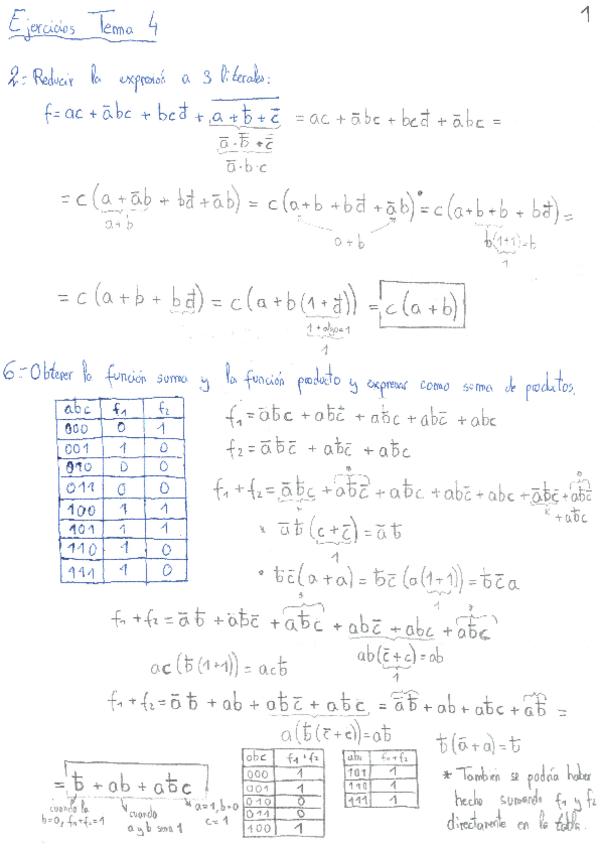 1
Ejercicios Tema 4
2.- Reducir la expresión a 3 literales:
f = ac + a̅bc + bcd̅ + \overline{a + b̅ + c̅} = ac + a̅bc + bcd̅ + a̅bc =
a̅ · b̿ + c̿
a̅ · b · c
= c (a + a̅b + bd̅ + a̅b) = c (a + b + bd̅ + a̅b) = c (a + b + b + bd̅) =
a + b
a + b
b(1+1) = b
1
= c (a + b + bd̅) = c (a + b (1 + d̅)) = c (a + b)
1 + algo = 1
1
6.- Obtener la función suma y la función producto y expresar como suma de productos.
abc f₁ f₂
000 0 1
001 1 0
010 0 0
011 0 0
100 1 1
101 1 1
110 1 0
111 1 0
f₁ = a̅b̅c + ab̅c̅ + ab̅c + abc̅ + abc
f₂ = a̅b̅c̅ + ab̅c̅ + ab̅c
f₁ + f₂ = a̅b̅c + ab̅c̅ + ab̅c + abc̅ + abc + a̅b̅c̅ + ab̅c̅
+ ab̅c
* a̅b̅ (c + c̅) = a̅b̅
1
• b̅c̅ (a + a) = b̅c̅ (a(1+1)) = b̅c̅a
1
f₁ + f₂ = a̅b̅ + ab̅c̅ + ab̅c + abc̅ + abc + ab̅c
ab(c̅ + c) = ab
1
ac (b̅(1+1)) = acb̅
f₁ + f₂ = a̅b̅ + ab + ab̅c̅ + ab̅c = a̅b̅ + ab + ab̅c + ab̅ =
a(b̅(c̅ + c)) = ab̅
b̅(a̅ + a) = b̅
= b̅ + ab + ab̅c
cuando la
b=0, f₁+f₂=1
cuando
a y b sean 1
a=1, b=0
c=1
abc f₁+f₂
000 1
001 1
010 0
011 0
100 1
abc f₁+f₂
101 1
110 1
111 1
* También se podría haber
hecho sumando f₁ y f₂
directamente en la tabla.